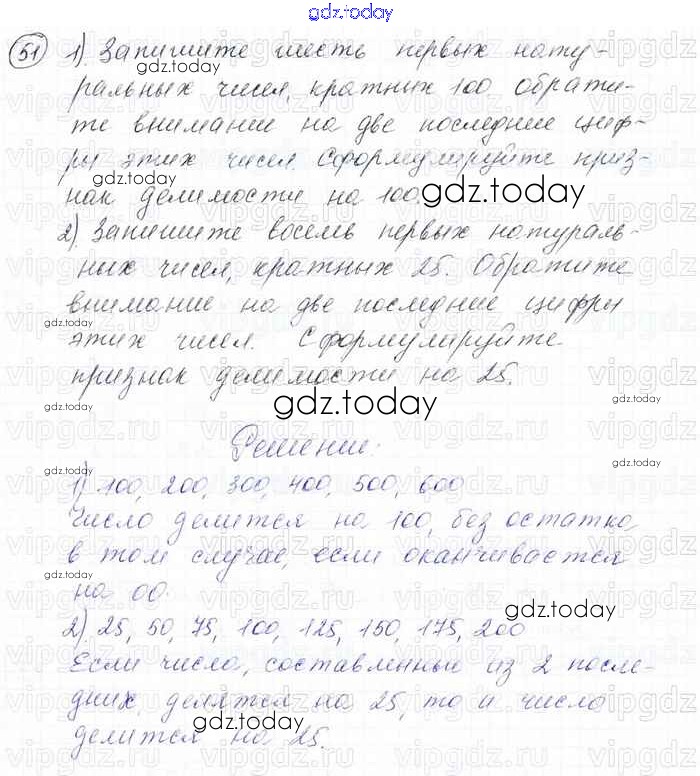 gdz.today
51 1) Запишите шесть первых нату-
ральных чисел, кратных 100 обрати-
те внимание на две последние циф-
ры этих чисел. Сформулируйте приз-
нак делимости на 100.
2) Запишите восемь первых натураль-
ных чисел, кратных 25. Обратите
внимание на две последние цифры
этих чисел. Сформулируйте
признак делимости на 25.
gdz.today
Решение:
1) 100, 200, 300, 400, 500, 600
Число делится на 100, без остатка
в том случае, если оканчивается
на 00.
gdz.today
2) 25, 50, 75, 100, 125, 150, 175, 200
Если число, составленные из 2 после-
дних, делятся на 25, то и число
делится на 25.
gdz.today